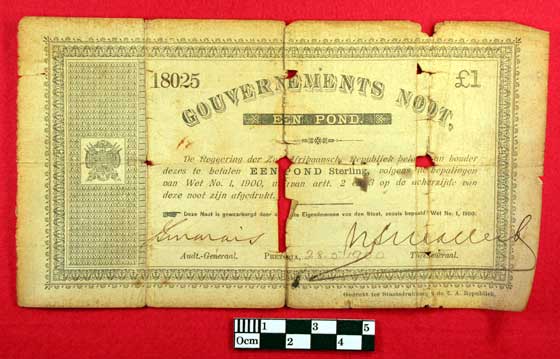 18025 £1
GOUVERNEMENTS NOOT,
EEN POND.
De Regeering der Republiek houder
dezes te betalen EEN POND Sterling, volgens de bepalingen
van Wet No. 1, 1900, waarvan artt. 2 en 3 op de achterzijde van
deze noot zijn afgedrukt.
Deze Noot is gewaarborgd door Eigendommen van den Staat, zooals bepaald Wet No. 1, 1900.
Audt.-Generaal. PRETORIA, 28.5.1900
Gedrukt ter Staatsdrukkerij Z. A. Republiek.
0cm 1 2 3 4 5